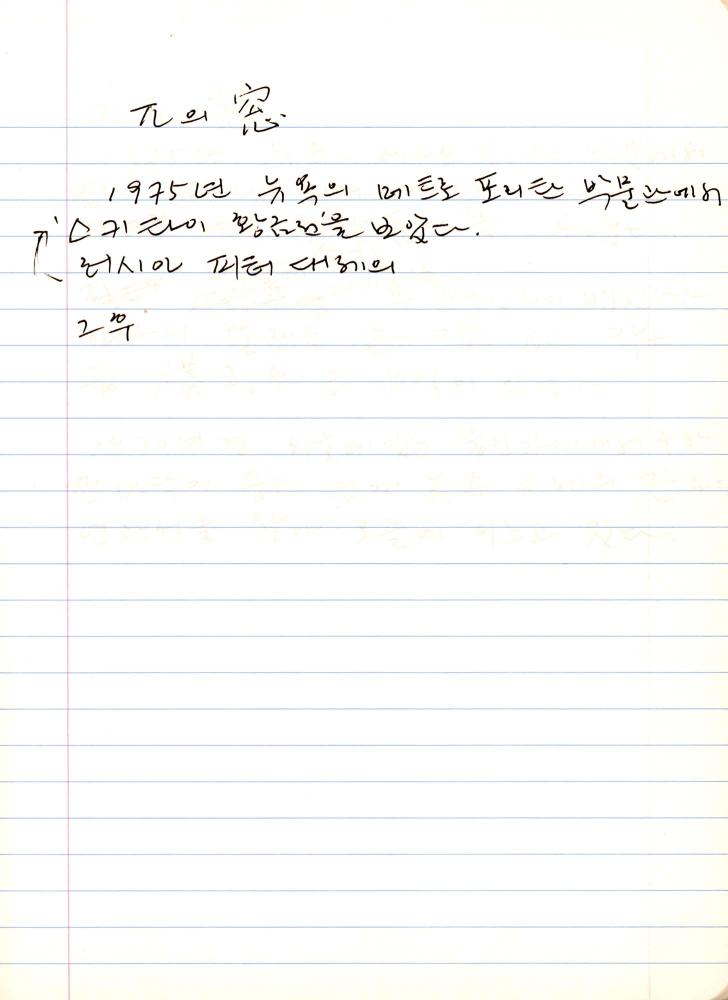 π의 窓
1975년 뉴욕의 메트로 포리탄 박물관에서
스키타이 황금전을 보았다.
러시아 피터 대제의
그후